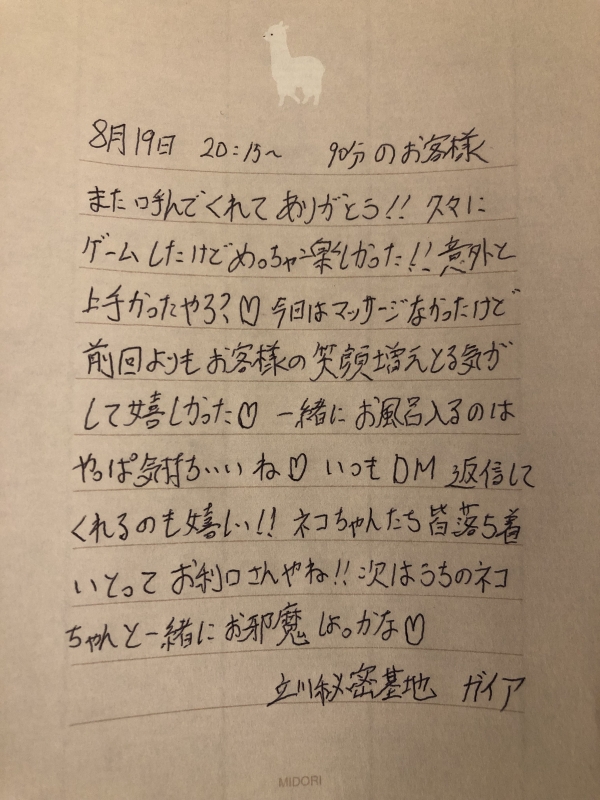 8月19日 20:15〜 90分のお客様
また呼んでくれてありがとう!! 久々に
ゲームしたけどめっちゃ楽しかった!! 意外と
上手かったやろ?♡ 今日はマッサージなかったけど
前回よりもお客様の笑顔増えとる気が
して嬉しかった♡ 一緒にお風呂入るのは
やっぱ気持ちいいね♡ いつもDM返信して
くれるのも嬉しい!! ネコちゃんたち皆落ち着
いとってお利口さんやね!! 次はうちのネコ
ちゃんと一緒にお邪魔しよっかな♡
立川秘密基地 ガイア
MIDORI